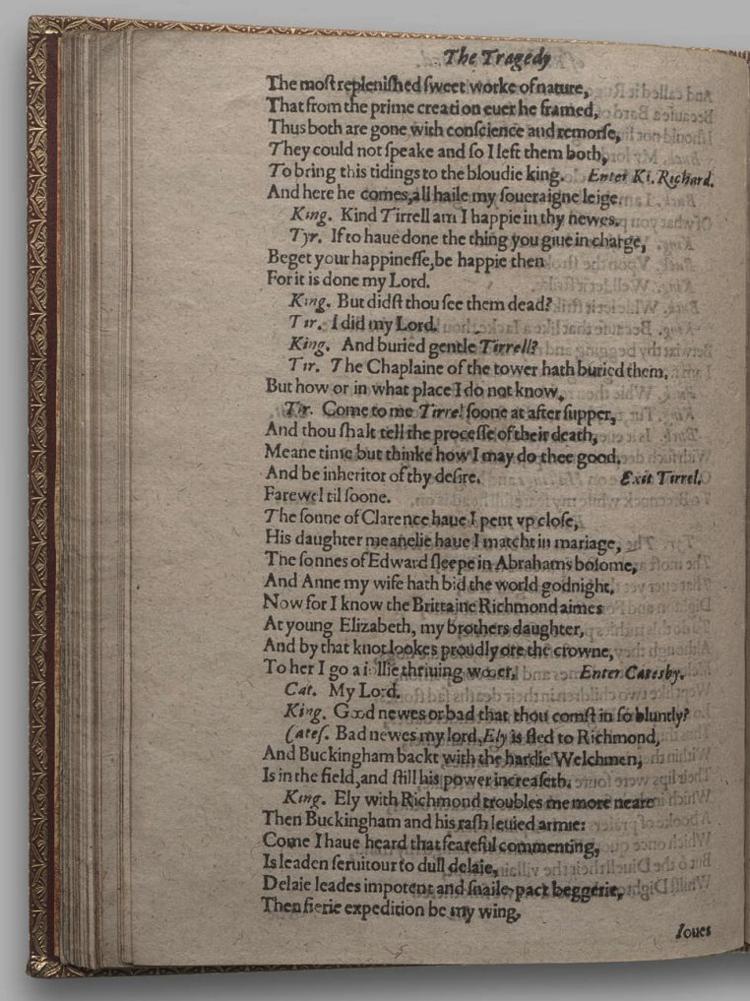 The Tragedy
The most replenished sweet worke of nature,
That from the prime creation euer he framed,
Thus both are gone with conscience and remorse,
They could not speake and so I left them both,
To bring this tidings to the bloudie king. Enter Ki. Richard.
And here he comes, all haile my soueraigne leige.
King. Kind Tirrell am I happie in thy newes.
Tyr. If to haue done the thing you giue in charge,
Beget your happinesse, be happie then
For it is done my Lord.
King. But didst thou see them dead?
Tir. I did my Lord.
King. And buried gentle Tirrell?
Tir. The Chaplaine of the tower hath buried them,
But how or in what place I do not know,
Tir. Come to me Tirrel soone at after supper,
And thou shalt tell the processe of their death,
Meane time but thinke how I may do thee good,
And be inheritor of thy desire. Exit Tirrel.
Farewel til soone.
The sonne of Clarence haue I pent vp close,
His daughter meanelie haue I matcht in mariage,
The sonnes of Edward sleepe in Abrahams bosome,
And Anne my wife hath bid the world godnight,
Now for I know the Brittaine Richmond aimes
At young Elizabeth, my brothers daughter,
And by that knot lookes proudly ore the crowne,
To her I go a thriuing wooer. Enter Catesby.
Cat. My Lord.
King. Good newes or bad that thou comst in so bluntly?
Cates. Bad newes my lord, Ely is fled to Richmond,
And Buckingham backt with the hardie Welchmen,
Is in the field, and still his power increaseth.
King. Ely with Richmond troubles me more neare
Then Buckingham and his rash leuied armie:
Come I haue heard that fearful commenting,
Is leaden seruitour to dull delaie,
Delaie leades impotent and snaile-pact beggerie,
Then fierie expedition be my wing,
Ioues